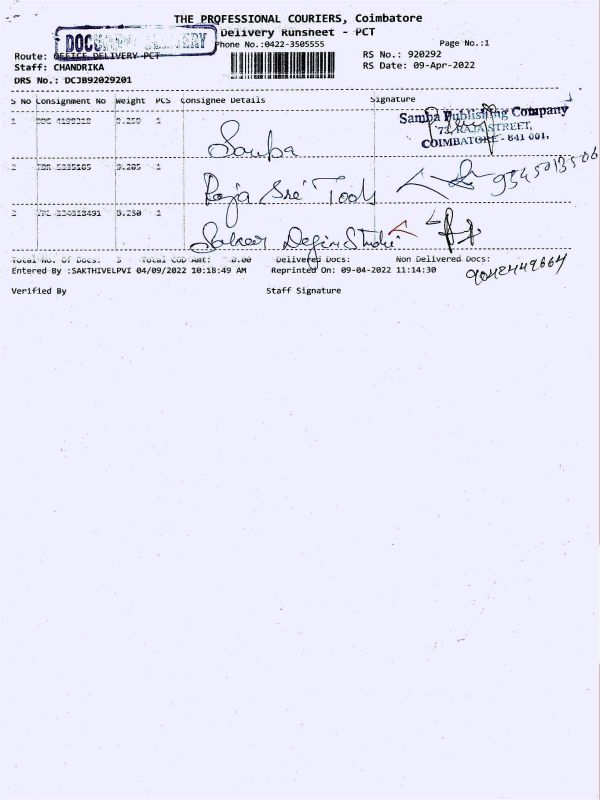 THE PROFESSIONAL COURIERS, Coimbatore
Delivery Runsheet - PCT
DOCUMENT DELIVERY
Phone No.:0422-3505555
Page No.:1
Route: OFFICE DELIVERY PCT
RS No.: 920292
Staff: CHANDRIKA
RS Date: 09-Apr-2022
DRS No.: DCJB92029201
S No Consignment No Weight PCS Consignee Details Signature
1 4199318 0.250 1
Samba
Samba Publishing Company
73, RAJA STREET,
COIMBATORE - 641 001.
2 IDR 5335165 0.265 1
Raja Sre Tools
9345013506
3 334818491 0.250 1
Total No. Of Docs: 3 Total COD Amt: 0.00 Delivered Docs: Non Delivered Docs:
Entered By :SAKTHIVELPVI 04/09/2022 10:18:49 AM Reprinted On: 09-04-2022 11:14:30
9042449664
Verified By Staff Signature